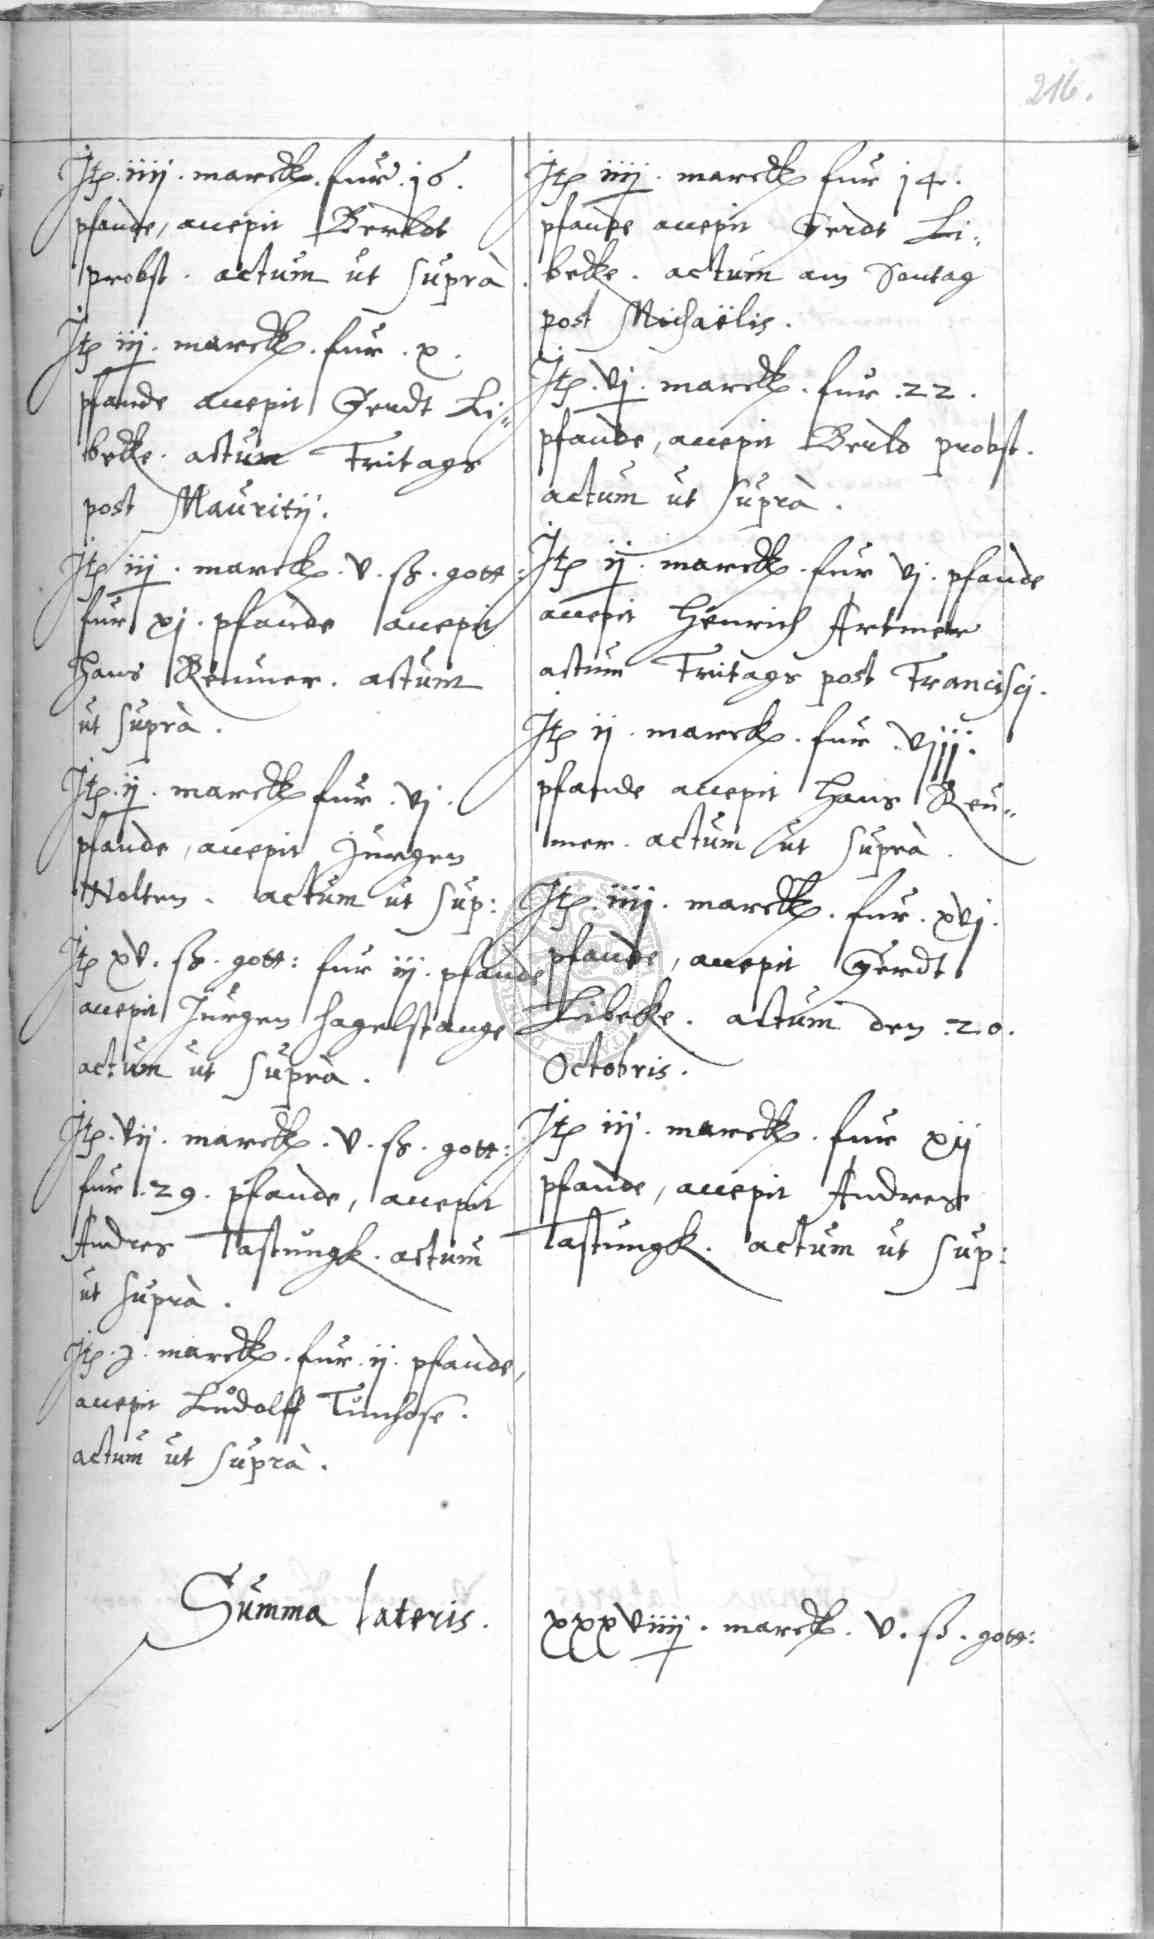 216.
Jtȩ. iiij. marck. fur. 16.
pfande, accepit Berldt
probst. actum ut suprà.
Jtȩ iij. marck. fur. x.
pfande accepit Gerdt Li-
becke. actum Fritags
post Mauritij.
Jtȩ iij. marck. v. ß. gott:
fur xj. pfande accepit
Hans Reumer. actum
ut suprà.
Jtȩ. ij. marck fur. vj.
pfande, accepit Jurgen
Nolten. actum ut sup:
Jtȩ xv. ß. gott: fur iij. pfande
accepit Jurgen Hagelstange
actum ut suprà.
Jtȩ. vij. marck. v. ß. gott:
fur. 29. pfande, accepit
Andres Tastungk. actum
ut suprà.
Jtȩ. j. marck. fur. ij. pfande,
accepit Ludolff Tunhose.
actum ut suprà.
Jtȩ iiij. marck fur 14.
pfande accepit Gerdt Li-
becke. actum am Sontag
post Michaëlis.
Jtȩ. vj. marck. fur. 22.
pfande, accepit Berld probst.
actum ut suprà.
Jtȩ ij. marck. fur vj. pfande
accepit Henrich Artmer
actum Fritags post Francisci.
Jtȩ ij. marck. fur. viij.
pfande accepit Hans Reu-
mer. actum ut suprà.
Jtȩ. iiij. marck. fur. xvj.
pfande, accepit Gerdt
Libecke. actum den. 20.
Octobris.
Jtȩ iij. marck. fur xij
pfande, accepit Andreß
Tastungk. actum ut sup:
Summa lateris. xxxviiij. marck. v. ß. gott: